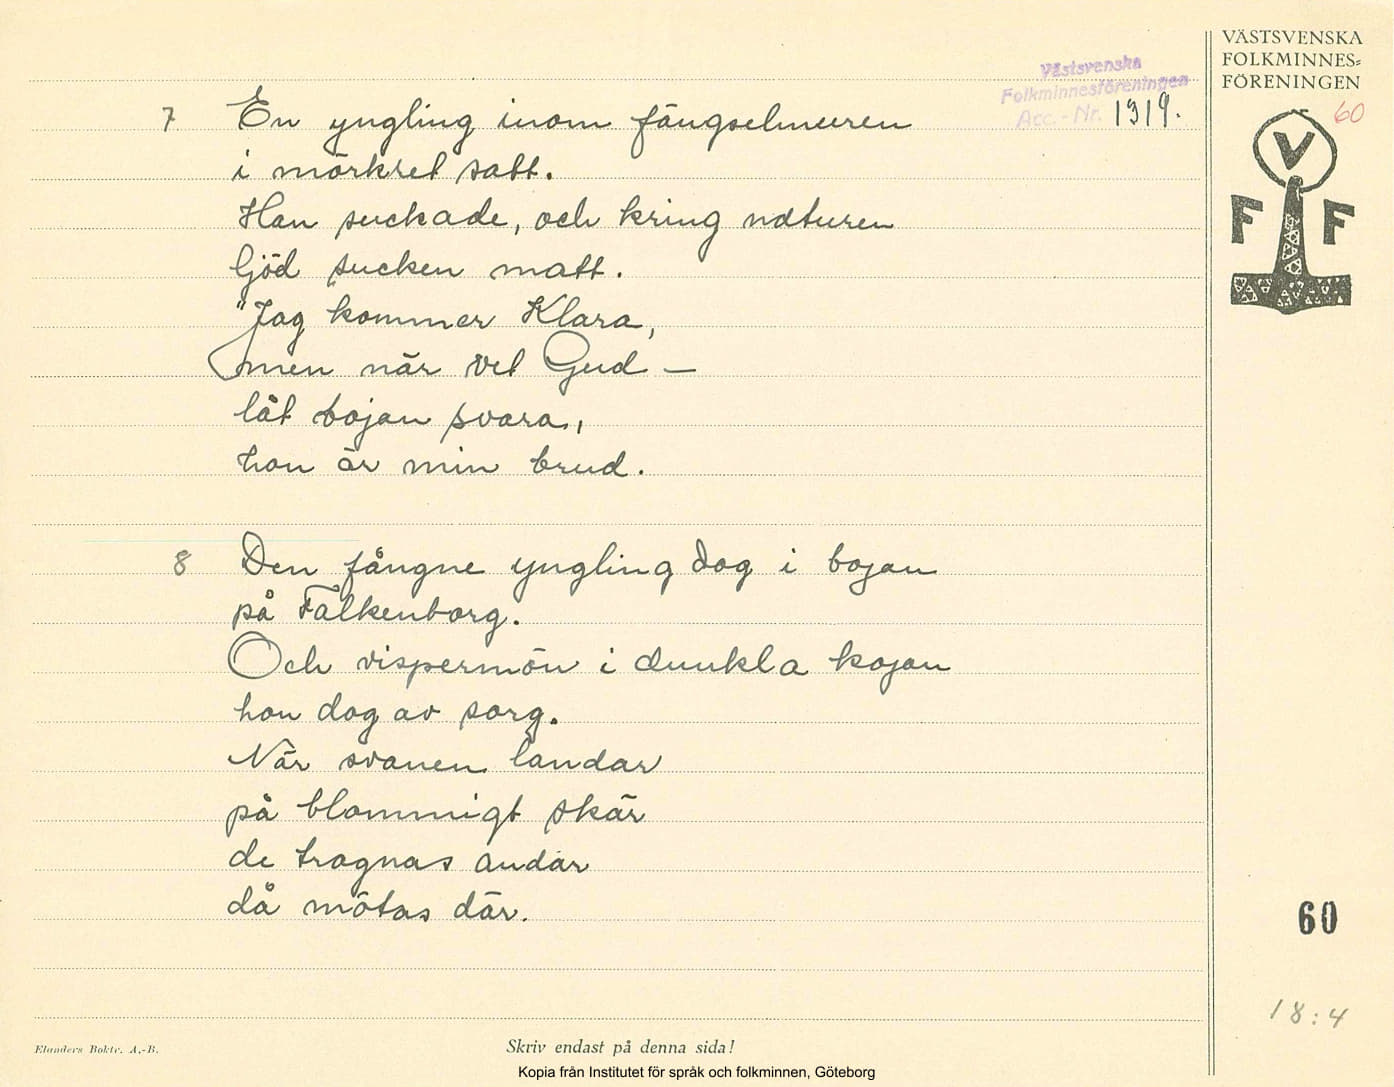 VÄSTSVENSKA
FOLKMINNES=
FÖRENINGEN
Västsvenska
Folkminnesföreningen
Acc.-Nr. 1319.
60
V
F F
7 En yngling inom fängselmuren
i mörkret satt.
Han suckade, och kring naturen
ljöd sucken matt.
"Jag kommer Klara,
men när vet Gud —
låt bojan svara,
hon är min brud.
8 Den fångne yngling dog i bojan
på Falkenborg.
Och vispermön i dunkla kojan
hon dog av sorg.
När svanen landar
på blommigt skär
de trognas andar
då mötas där.
60
18:4
Elanders Boktr. A.-B.
Skriv endast på denna sida!
Kopia från Institutet för språk och folkminnen, Göteborg